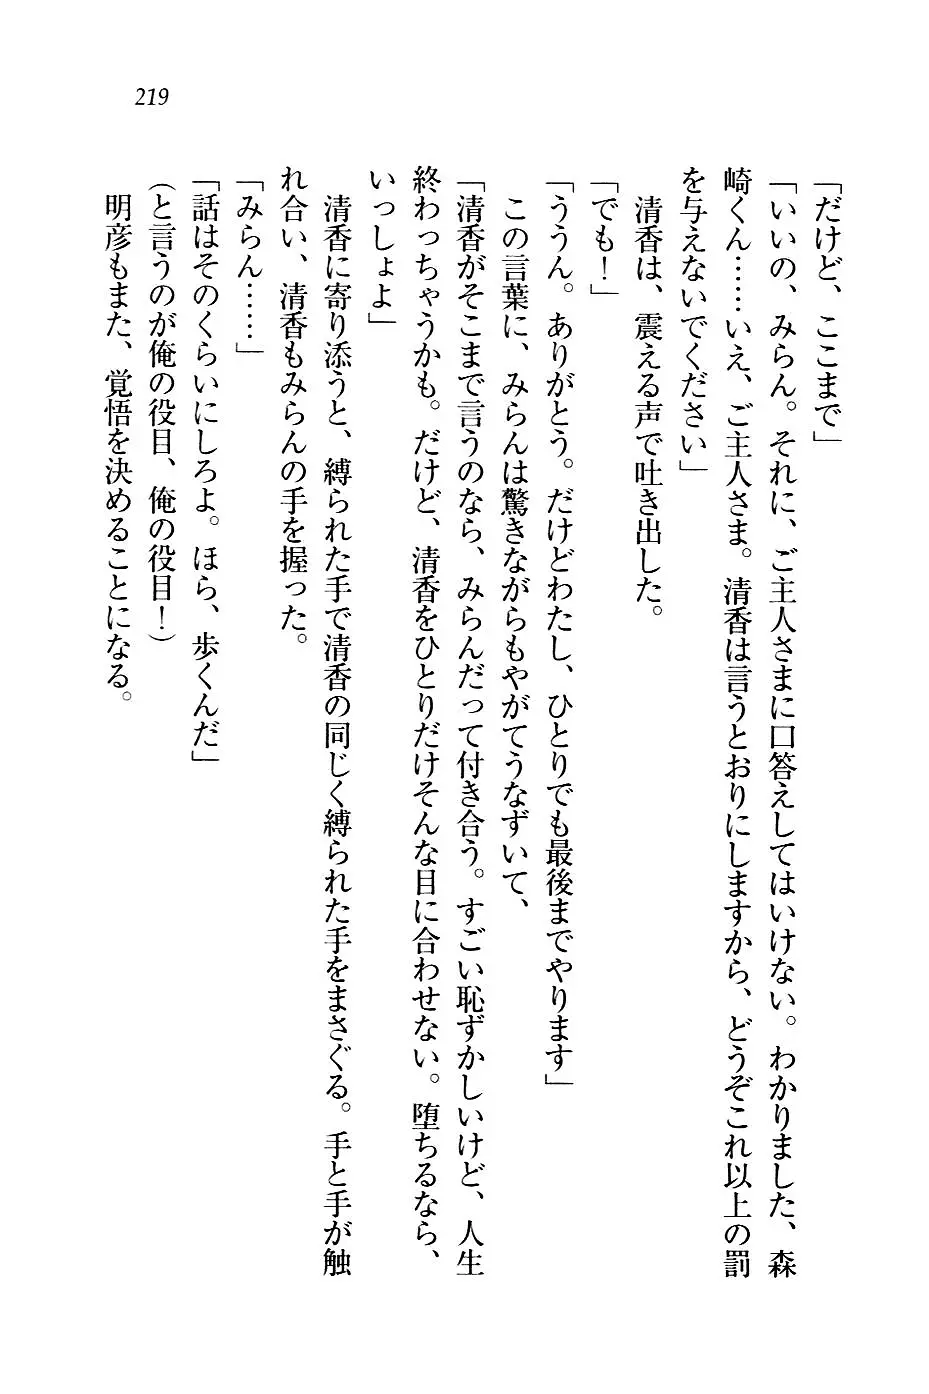 219
「だけど、ここまで」
「いいの、みらん。それに、ご主人さまに口答えしてはいけない。わかりました、森
崎くん……いえ、ご主人さま。清香は言うとおりにしますから、どうぞこれ以上の罰
を与えないでください」
清香は、震える声で吐き出した。
「でも！」
「ううん。ありがとう。だけどわたし、ひとりでも最後までやります」
この言葉に、みらんは驚きながらもやがてうなずいて、
「清香がそこまで言うのなら、みらんだって付き合う。すごい恥ずかしいけど、人生
終わっちゃうかも。だけど、清香をひとりだけそんな目に合わせない。堕ちるなら、
いっしょよ」
清香に寄り添うと、縛られた手で清香の同じく縛られた手をまさぐる。手と手が触
れ合い、清香もみらんの手を握った。
「みらん……」
「話はそのくらいにしろよ。ほら、歩くんだ」
（と言うのが俺の役目、俺の役目！）
明彦もまた、覚悟を決めることになる。